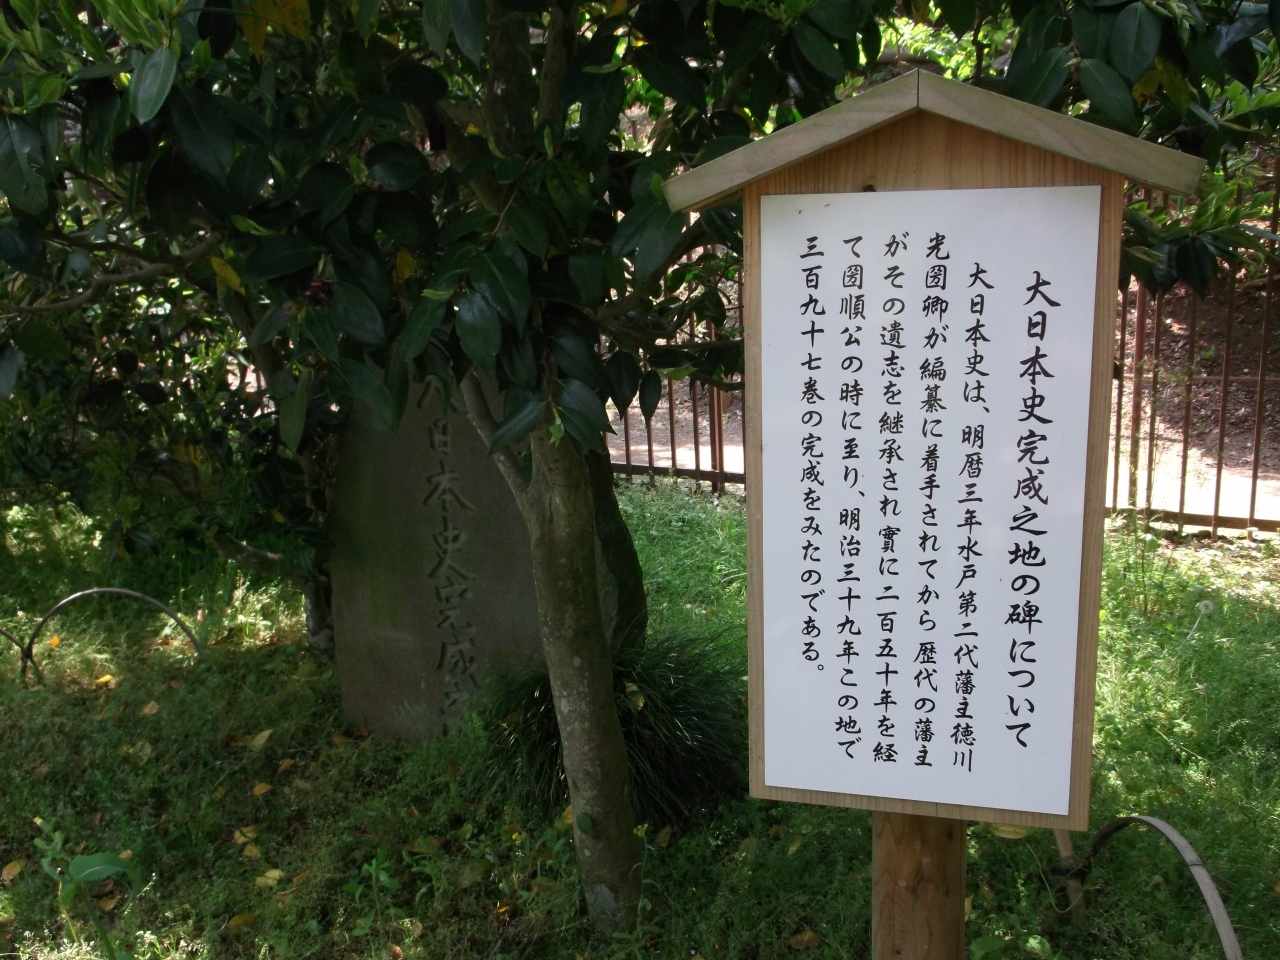 大日本史完成之地の碑について
大日本史は、明暦三年水戸第二代藩主徳川
光圀卿が編纂に着手されてから歴代の藩主
がその遺志を継承され實に二百五十年を経
て圀順公の時に至り、明治三十九年この地で
三百九十七巻の完成をみたのである。
日本史完成